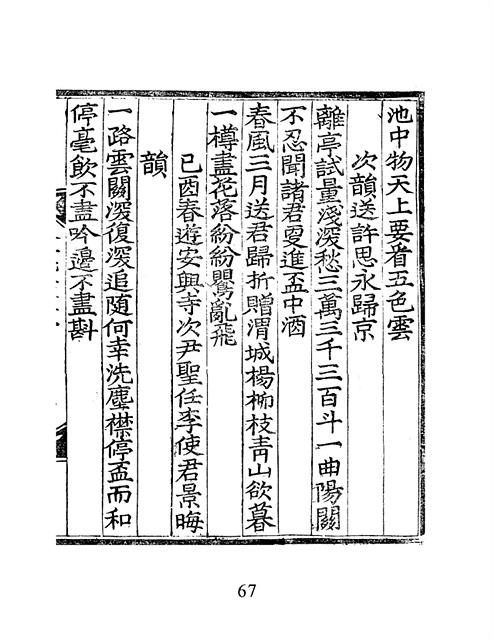 池中物天上要看五色雲
次韻送許思永歸京
離亭試量淺深愁三萬三千三百斗一曲陽關
不忍聞諸君更進盃中酒
春風三月送君歸折贈渭城楊柳枝青山欲暮
一樽盡花落紛紛鸎亂飛
己酉春遊安興寺次尹聖任李使君景晦
韻
一路雲關深復深追随何幸洗塵襟停盃而和
停毫飲不盡吟邊不盡斟
67